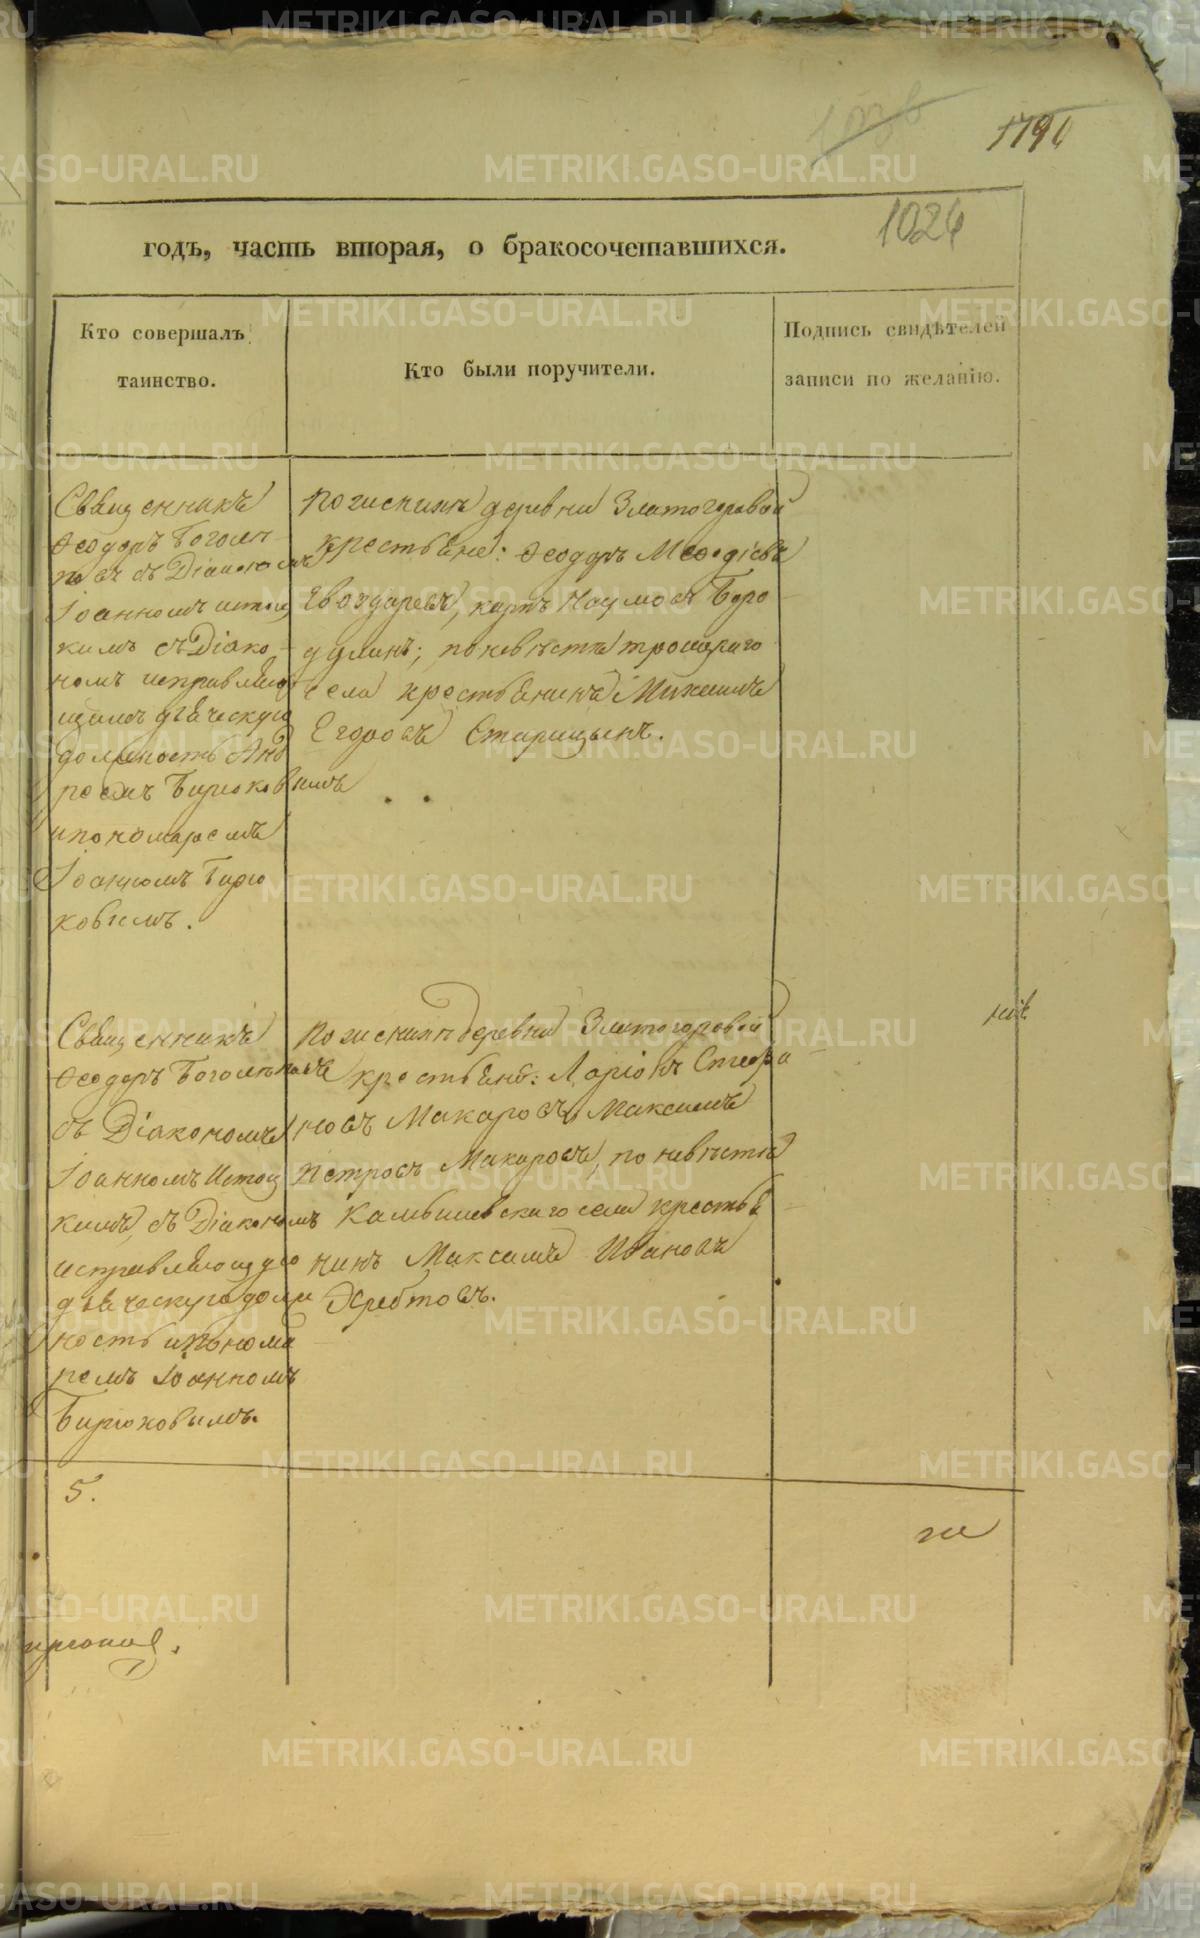 1036
1791
1026
годъ, часть вторая, о бракосочетавшихся.
Кто совершалъ
таинство.
Кто были поручители.
Подпись свидѣтелей
записи по желанію.
Священникъ
Ѳеодоръ Боголѣ
повъ съ Діакономъ
Іоанномъ Истоц
кимъ съ Діако
номъ исправляю
щимъ дьяческую
должность Анд
реемъ Бирюковымъ
и пономаремъ
Іоанномъ Бирю
ковымъ.
По женихѣ деревни Златогоровой
крестьяне: Ѳеодоръ Меѳодіевъ
Гвоздаревъ, Наумовъ Боро
дулинъ; по невѣстѣ Троицкаго
села крестьянинъ Михаилъ
Егоровъ Старицынъ.
Священникъ
Ѳеодоръ Боголѣповъ
съ Діакономъ
Іоанномъ Истоц
кимъ, съ Діакономъ
исправляющую
дьяческую долж
ность и понома
ремъ Іоанномъ
Бирюковымъ.
По женихѣ деревни Златогоровой
крестьяне: Ларіонъ Стефа
новъ Макаровъ, Максимъ
Петровъ Макаровъ, по невѣстѣ
Камышевскаго села крестья
нинъ Максимъ Ивановъ
Хребтовъ.
5.
METRIKI.GASO-URAL.RU